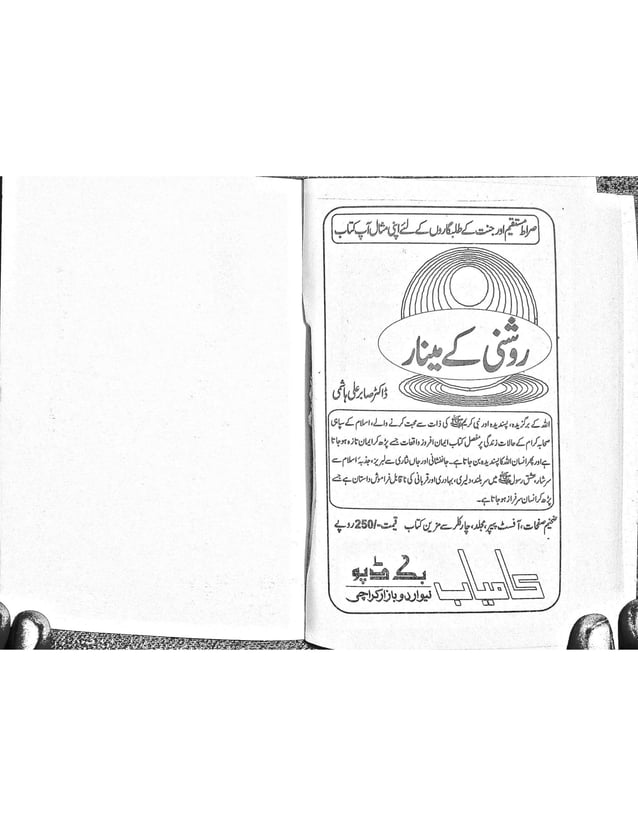 صراط مستقیم اور جنت کے طلبگاروں کے لئے اپنی مثال آپ کتاب
روشنی کے مینار
ڈاکٹر صابر علی ہاشمی
اللہ کے برگزیدہ، پسندیدہ اور نبی کریم ﷺ کی ذات سے محبت کرنے والے، اسلام کے سپاہی
صحابہ کرام کے حالات زندگی پر مفصل کتاب ایمان افروز واقعات جسے پڑھ کر ایمان تازہ ہو جاتا
ہے اور پھر انسان اللہ کا پسندیدہ بن جاتا ہے۔ جانفشانی اور جاں نثاری سے لبریز، جذبہ اسلام سے
سرشار، عشق رسول ﷺ میں سربلند، دلیری، بہادری اور قربانی کی ناقابل فراموش داستان ہے جسے
پڑھ کر انسان سرفراز ہو جاتا ہے۔
ضخیم صفحات، آفسٹ پیپر، مجلد، چار کلر سے مزین کتاب قیمت -/250 روپے
کامیاب بک ڈپو
نیو اردو بازار کراچی